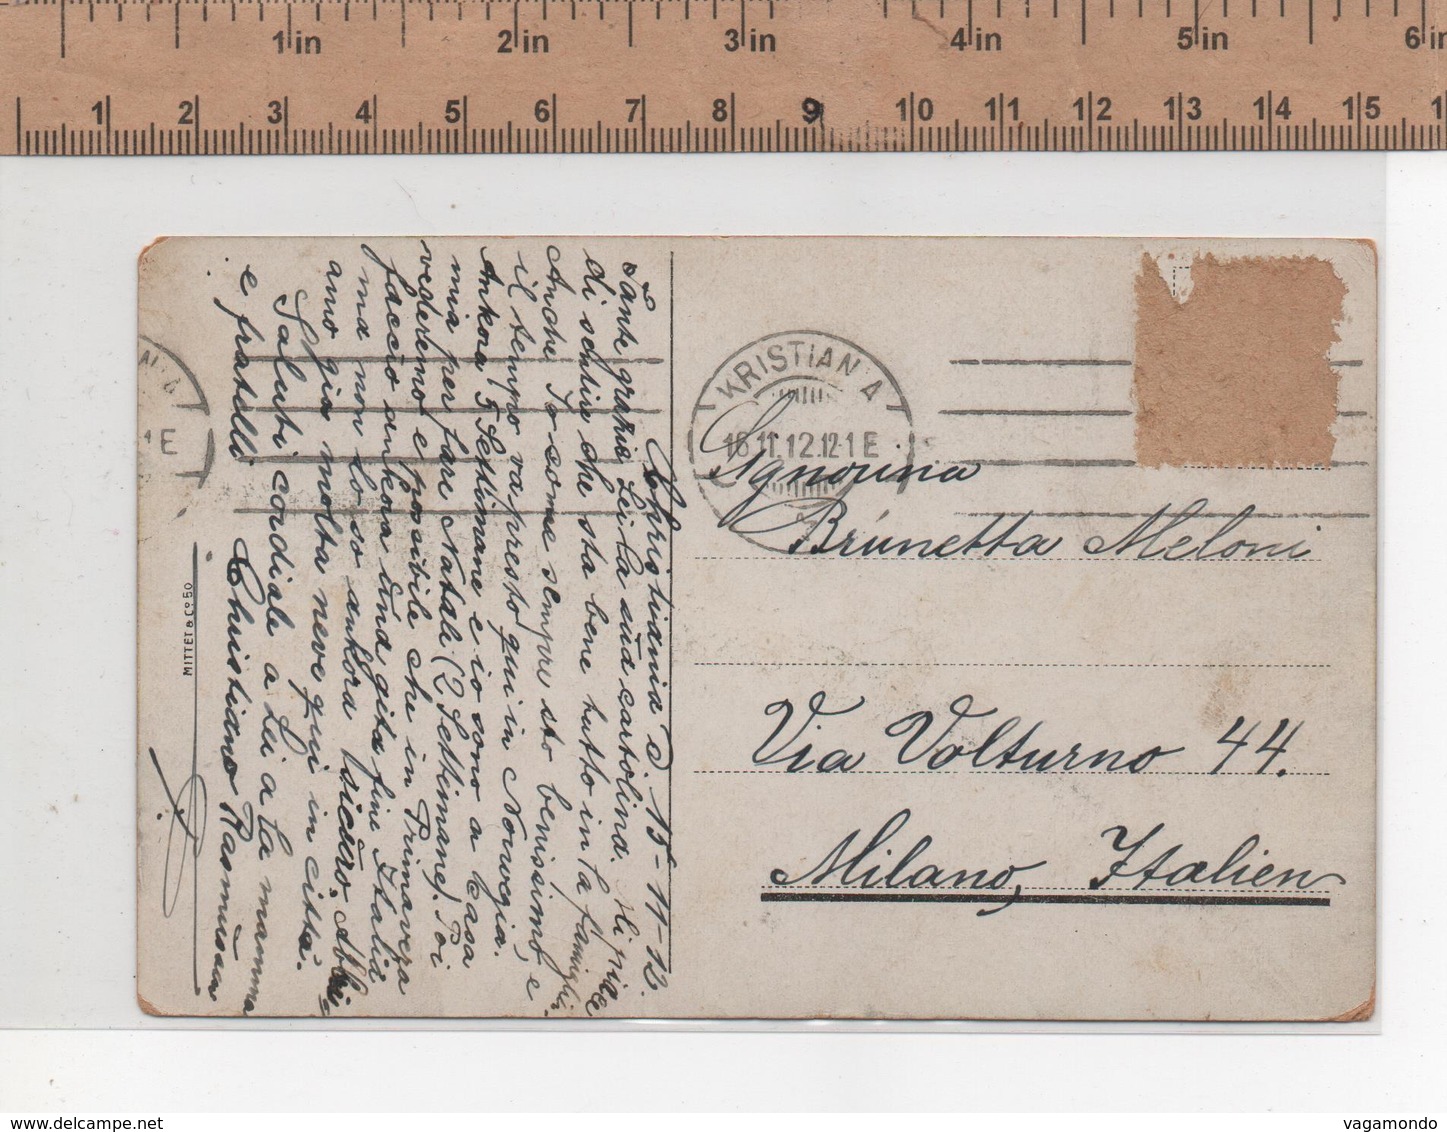 1 in 2 in 3 in 4 in 5 in 6 in
1 2 3 4 5 6 7 8 9 10 11 12 13 14 15 1
Christiania d. 15-11-12.
Tante grazie Lei la sua cartolina. Mi piace
di sentire che sta bene tutto in la famiglia.
Anche Io come sempre sto benissimo, e
il tempo va presto qui in Norvegia.
Ankora 5 Settimane e io sono a Casa
mia per fare Natale (2 Settimane). Poi
vederemo e possibile che in Primavera
faccio ankora una gita fine Italia
ma non lo so ankora sicuro. Abbi-
amo gia molta neve qui in citta.
Saluti cordiale a Lei a la mamma
e fratelli. Christiano Rasmussen
MITTET & Co 50
AN.A
1E
KRISTIANIA
16.11.12.12-1E
Signorina
Brunetta Meloni
Via Volturno 44.
Milano, Italien
vagamondo